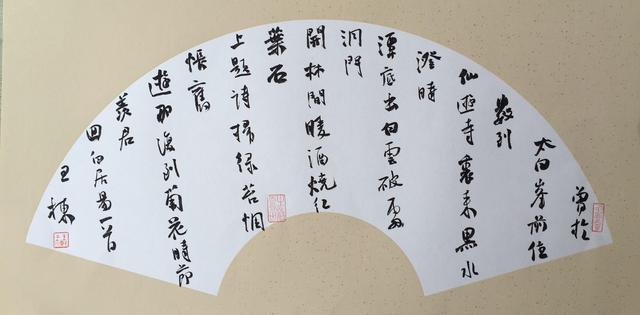 曾於
太白峯前住
數到
仙遊寺裏來黑水
澄時
潭底出白雲破處
洞門
開林間暖酒燒紅
葉石
上題詩掃綠苔惆
悵舊
遊那復到菊花時節
羨君
回白居易一首
王